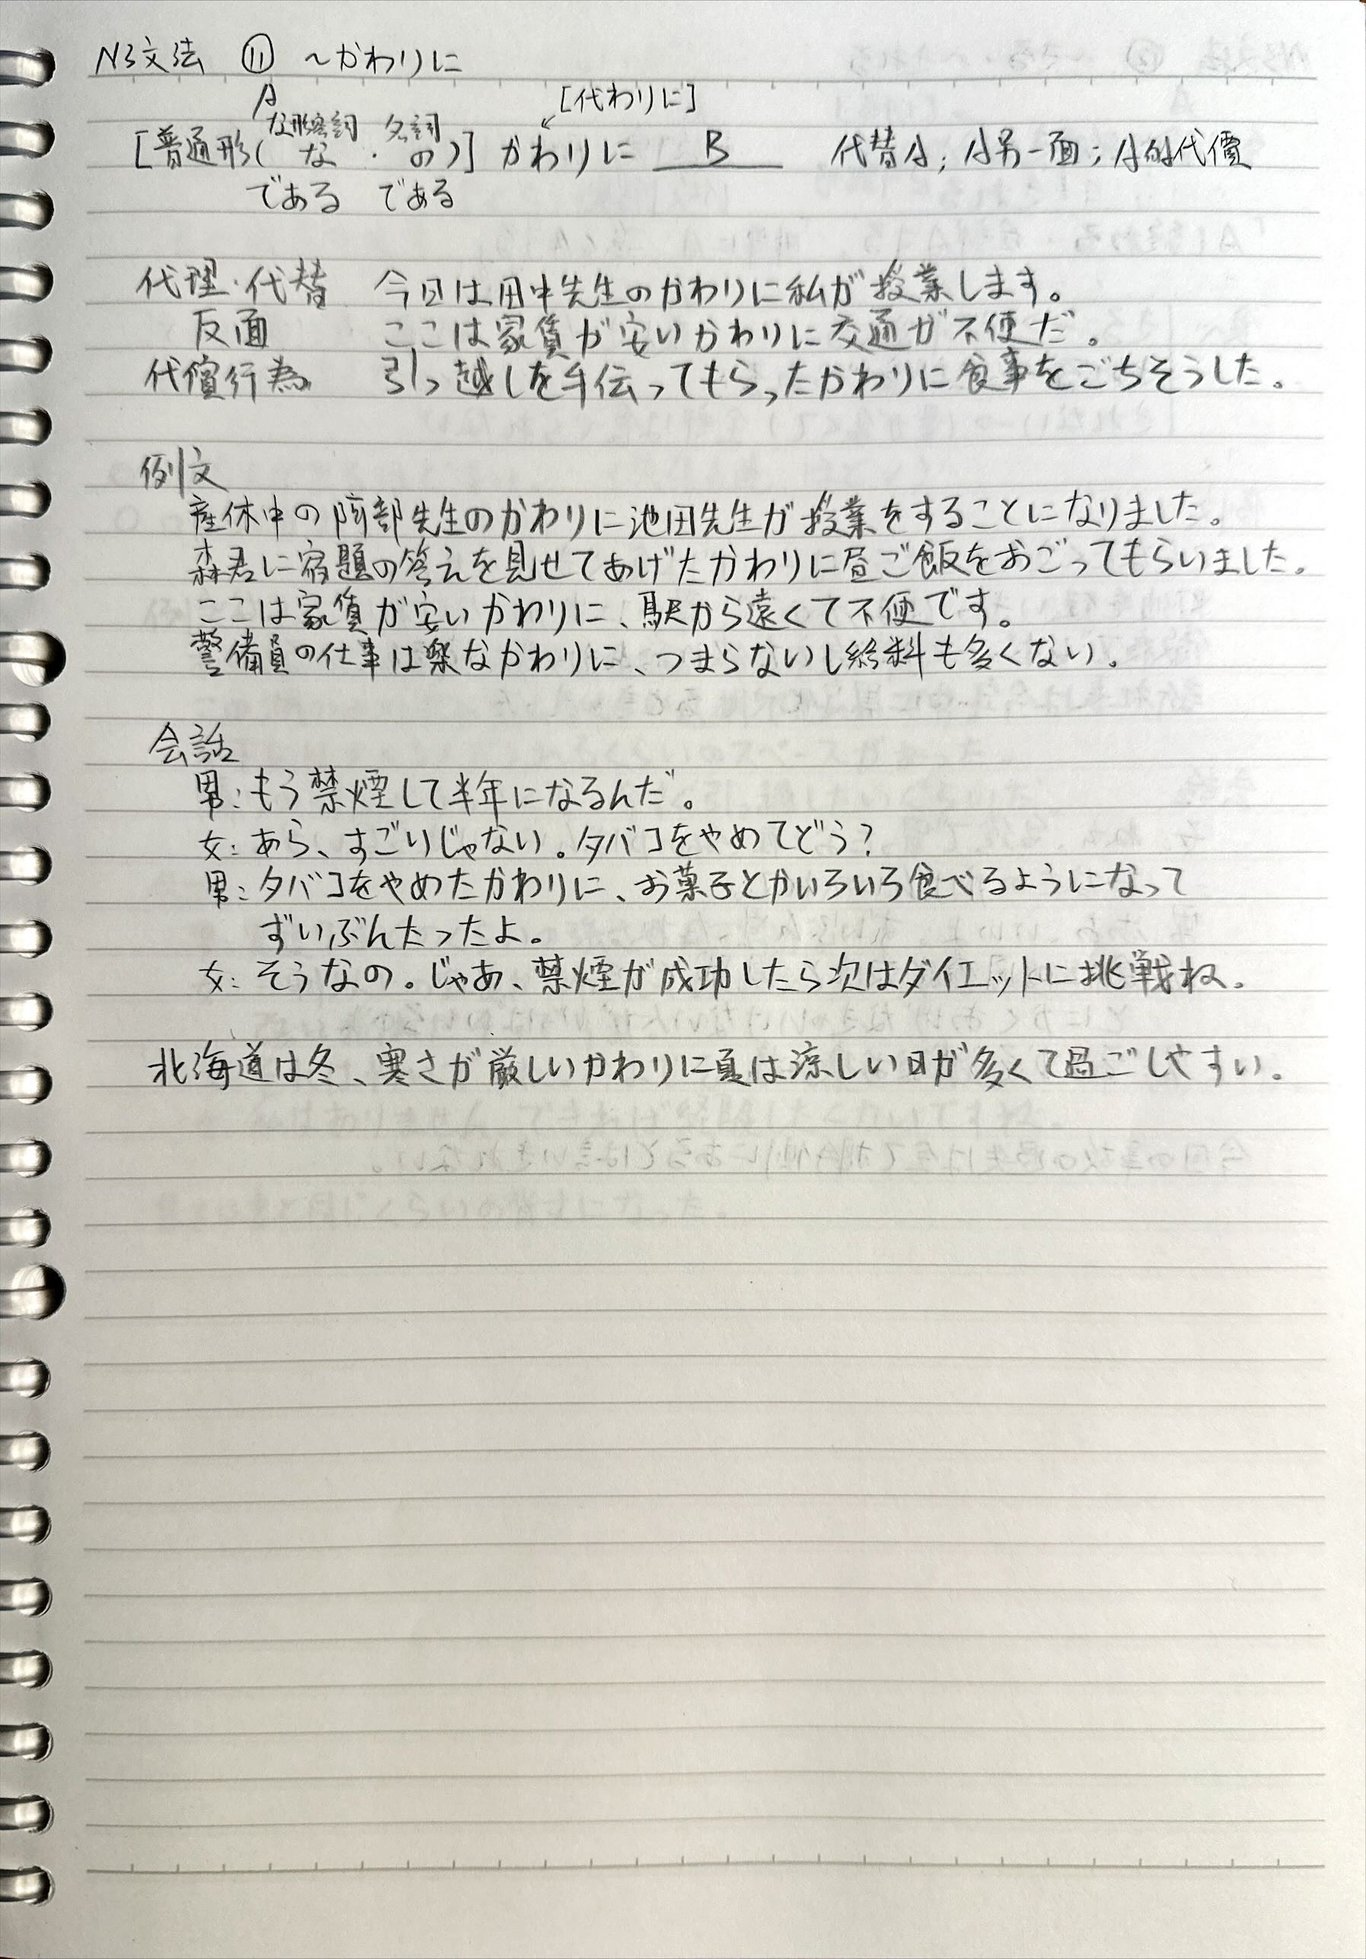 N3文法 ⑪ ～かわりに
A [代わりに]
な形容詞 名詞
[普通形( な ・ の)] かわりに ＿B＿ 代替A; A另一面; A的代價
である である
代理・代替 今日は田中先生のかわりに私が授業します。
反面 ここは家賃が安いかわりに交通が不便だ。
代償行為 引っ越しを手伝ってもらったかわりに食事をごちそうした。
例文
産休中の阿部先生のかわりに池田先生が授業をすることになりました。
森君に宿題の答えを見せてあげたかわりに昼ご飯をおごってもらいました。
ここは家賃が安いかわりに、駅から遠くて不便です。
警備員の仕事は楽なかわりに、つまらないし給料も多くない。
会話
男：もう禁煙して半年になるんだ。
女：あら、すごいじゃない。タバコをやめてどう？
男：タバコをやめたかわりに、お菓子とかいろいろ食べるようになって
ずいぶんたったよ。
女：そうなの。じゃあ、禁煙が成功したら次はダイエットに挑戦ね。
北海道は冬、寒さが厳しいかわりに夏は涼しい日が多くて過ごしやすい。